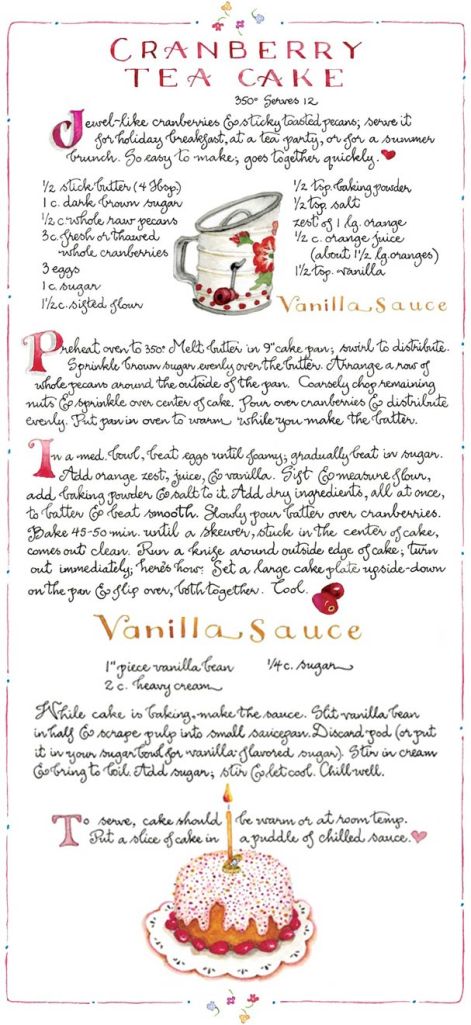 CRANBERRY
TEA CAKE
350° Serves 12
Jewel-like cranberries & sticky toasted pecans; serve it
for holiday breakfast, at a tea party, or for a summer
brunch. So easy to make; goes together quickly.
1/2 stick butter (4 Tbsp.)
1 c. dark brown sugar
1/2 c. whole raw pecans
3 c. fresh or thawed
whole cranberries
3 eggs
1 c. sugar
1 1/2 c. sifted flour
1/2 tsp. baking powder
1/2 tsp. salt
zest of 1 lg. orange
1/2 c. orange juice
(about 1 1/2 lg. oranges)
1/2 tsp. vanilla
Vanilla Sauce
Preheat oven to 350° Melt butter in 9" cake pan; swirl to distribute.
Sprinkle brown sugar evenly over the butter. Arrange a row of
whole pecans around the outside of the pan. Coarsely chop remaining
nuts & sprinkle over center of cake. Pour over cranberries & distribute
evenly. Put pan in oven to warm while you make the batter.
In a med. bowl, beat eggs until foamy; gradually beat in sugar.
Add orange zest, juice, & vanilla. Sift & measure flour,
add baking powder & salt to it. Add dry ingredients, all at once,
to batter & beat smooth. Slowly pour batter over cranberries.
Bake 45-50 min. until a skewer, stuck in the center of cake,
comes out clean. Run a knife around outside edge of cake; turn
out immediately; here's how: Set a large cake plate upside-down
on the pan & flip over, both together. Cool.
Vanilla Sauce
1" piece vanilla bean
2 c. heavy cream
1/4 c. sugar
While cake is baking, make the sauce. Slit vanilla bean
in half & scrape pulp into small saucepan. Discard pod (or put
it in your sugar bowl for vanilla-flavored sugar). Stir in cream
& bring to boil. Add sugar; stir & let cool. Chill well.
To serve, cake should be warm or at room temp.
Put a slice of cake in a puddle of chilled sauce.